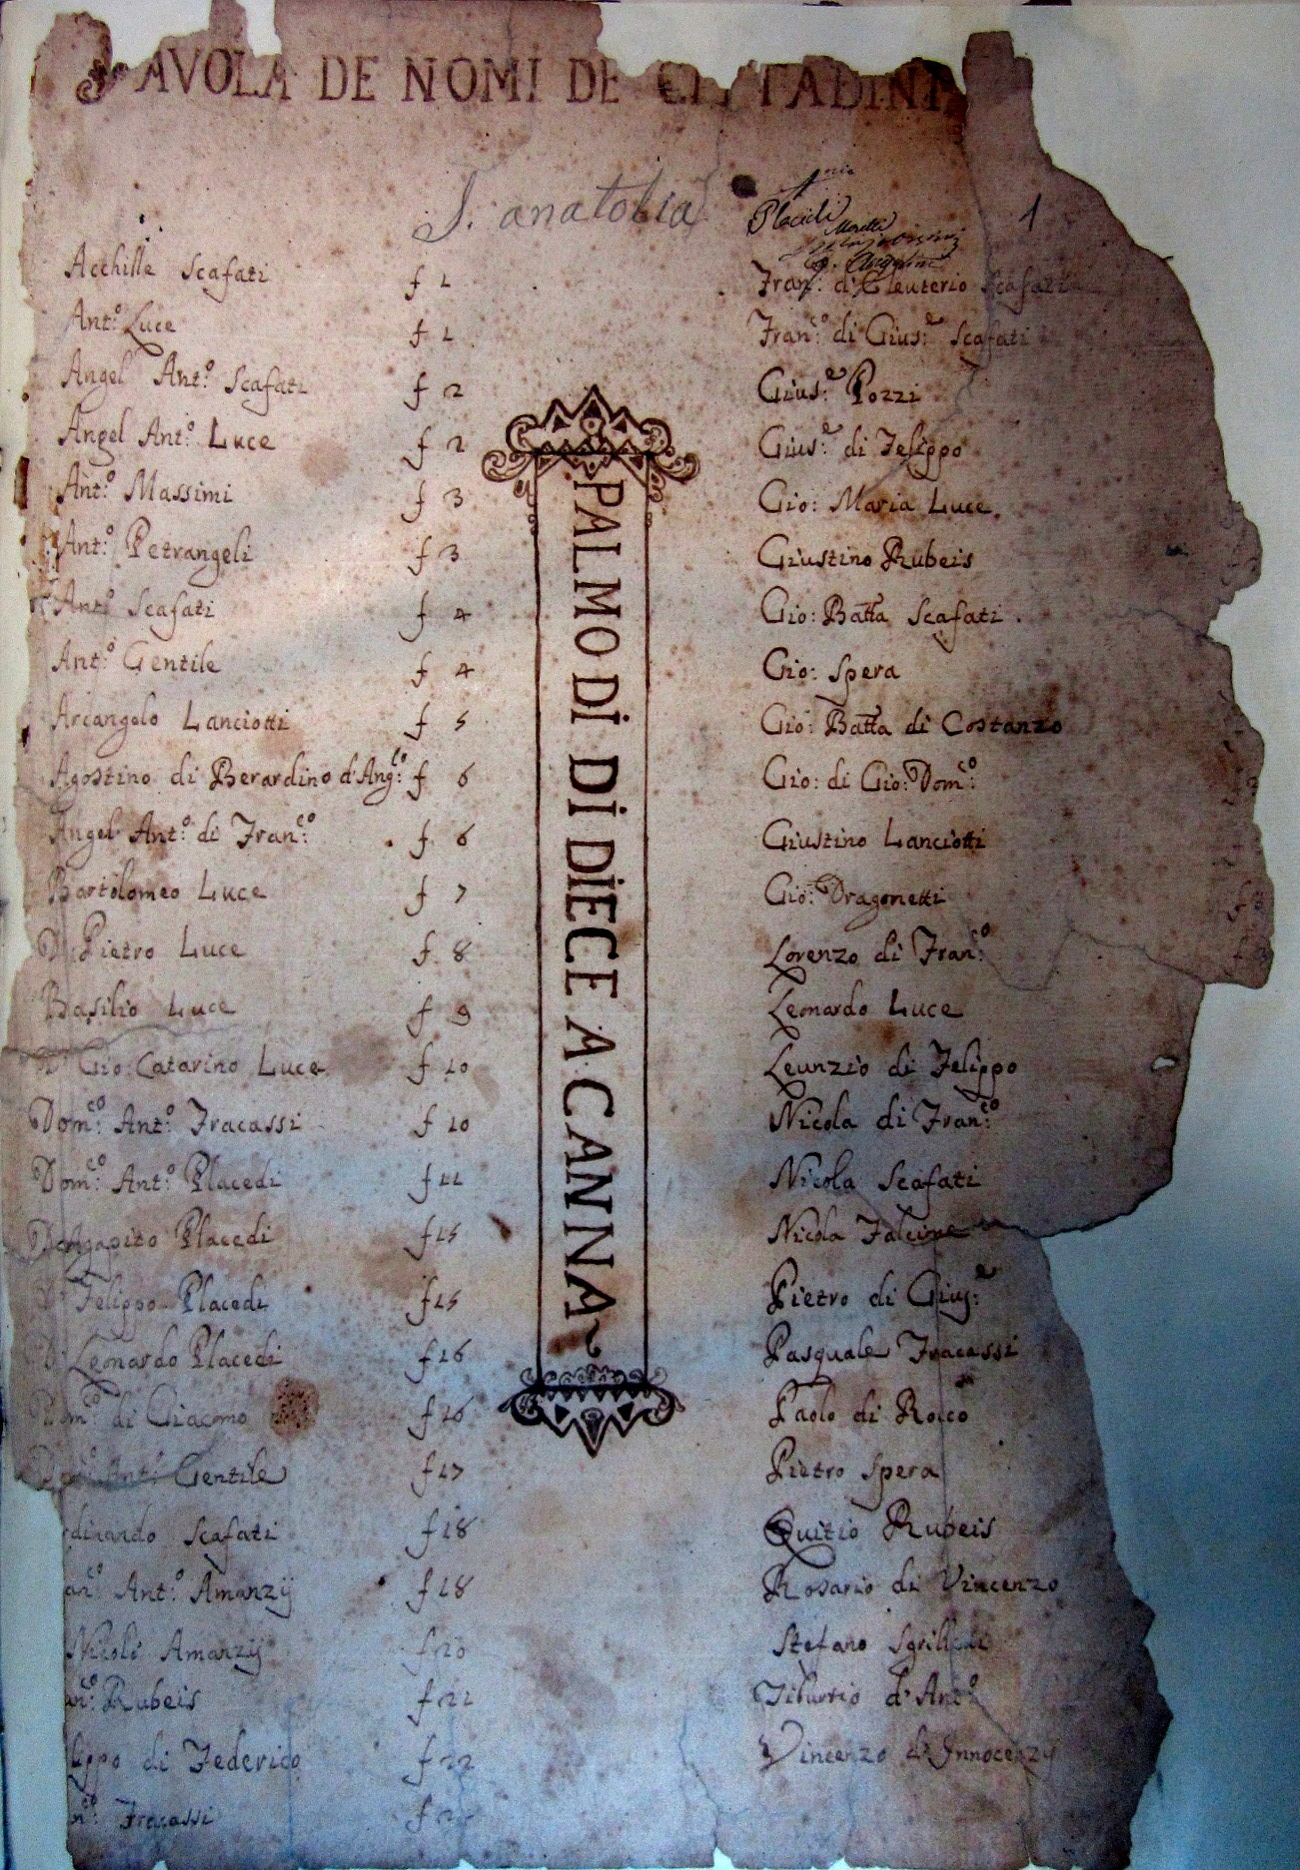 TAVOLA DE NOMI DE CITTADINI
S. anatolia
Placidi
1
Acchille Scafati f 1
Ant.º Luce f 1
Angel Ant.º Scafati f 2
Angel Ant.º Luce f 2
Ant.º Massimi f 3
Ant.º Petrangeli f 3
Ant.º Scafati f 4
Ant.º Gentile f 4
Arcangelo Lanciotti f 5
Agostino di Berardino d'Ang.lo f 6
Angel Ant.º di Fran.co f 6
Bartolomeo Luce f 7
D. Pietro Luce f 8
Basilio Luce f 9
D. Gio: Catarino Luce f 10
Dom.co Ant.º Fracassi f 10
Dom.co Ant.º Placedi f 11
D. Agapito Placedi f 15
D. Felippo Placedi f 15
D. Leonardo Placedi f 16
Dom.co di Giacomo f 16
Dom.co Ant.º Gentile f 17
dinando Scafati f 18
an.co Ant.º Amanzij f 18
Nicolò Amanzij f 20
an.co Rubeis f 21
lippo di Federico f 22
n.co Fracassi f 2
PALMO DI DI DIECE A CANNA
Fran.co d'Eleuterio Scafati
Fran.co di Gius.e Scafati
Gius.e Pozzi
Gius.e di Felippo
Gio: Maria Luce
Giustino Rubeis
Gio: Batta Scafati
Gio: Spera
Gio: Batta di Costanzo
Gio: di Gio: Dom.co
Giustino Lanciotti
Gio: Dragonetti
Lorenzo di Fran.co
Leonardo Luce
Leunzio di Felippo
Nicola di Fran.co
Nicola Scafati
Nicola Falcione
Pietro di Gius.e
Pasquale Fracassi
Paolo di Rocco
Pietro Spera
Quitio Rubeis
Rosario di Vincenzo
Stefano
Tiburtio d'Ant.º
Vincenzo d'Innocenzij